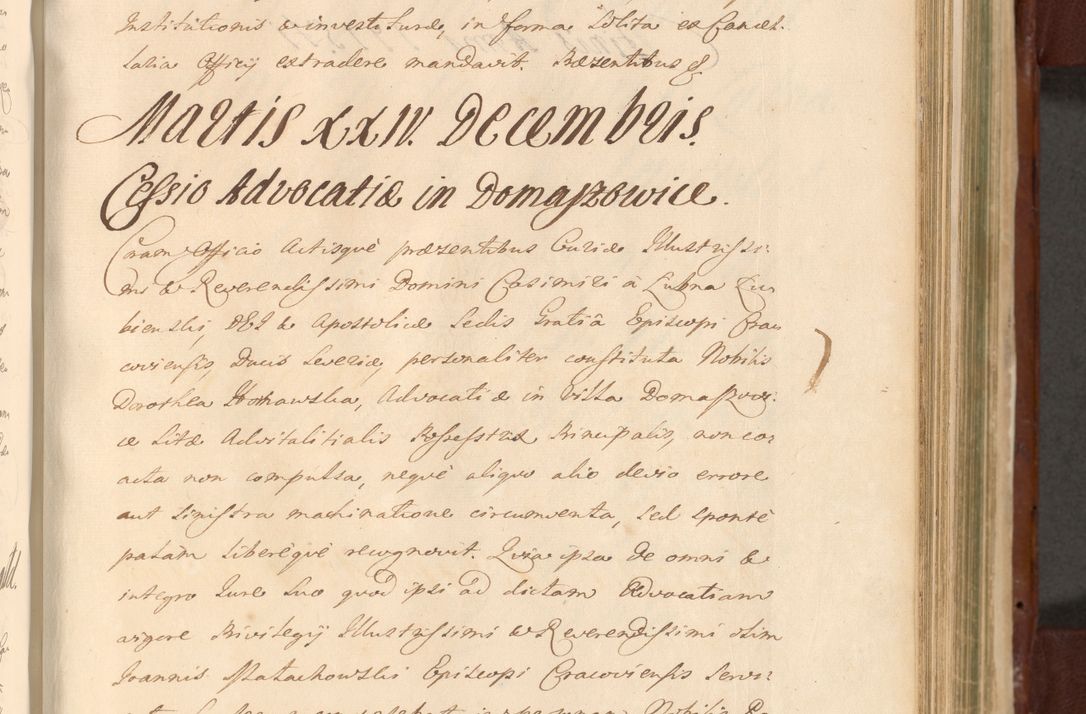 Institutionis & investituræ, in forma solita ex Cancel-
laria Officij extradere mandavit. Præsentibus &
Martis XXIV. Decembris.
Cessio Advocatiæ in Domaszowice.
Coram Officio Actisquè præsentibus Curiæ Illustrissi-
mi & Reverendissimi Domini Casimiri à Lubna Łu-
bienski, DEI & Apostolicæ Sedis Gratiâ Episcopi Cra-
coviensis, Ducis Severiæ, personaliter constituta Nobilis
Dorothea Advocatiæ in Villa Domaszowi-
ce sitæ Advitalitialis Possessrix Principalis, non co-
acta non compulsa, nequè aliquo alio devio errore
aut sinistra machinatione circumventa, sed spontè
palam liberèquè recognovit. Quia ipsa de omni &
integro Jure suo quod ipsi ad dictam Advocatiam
vigore Privilegij Illustrissimi & Reverendissimi olim
Joannis Małachowski Episcopi Cracoviensis servi-